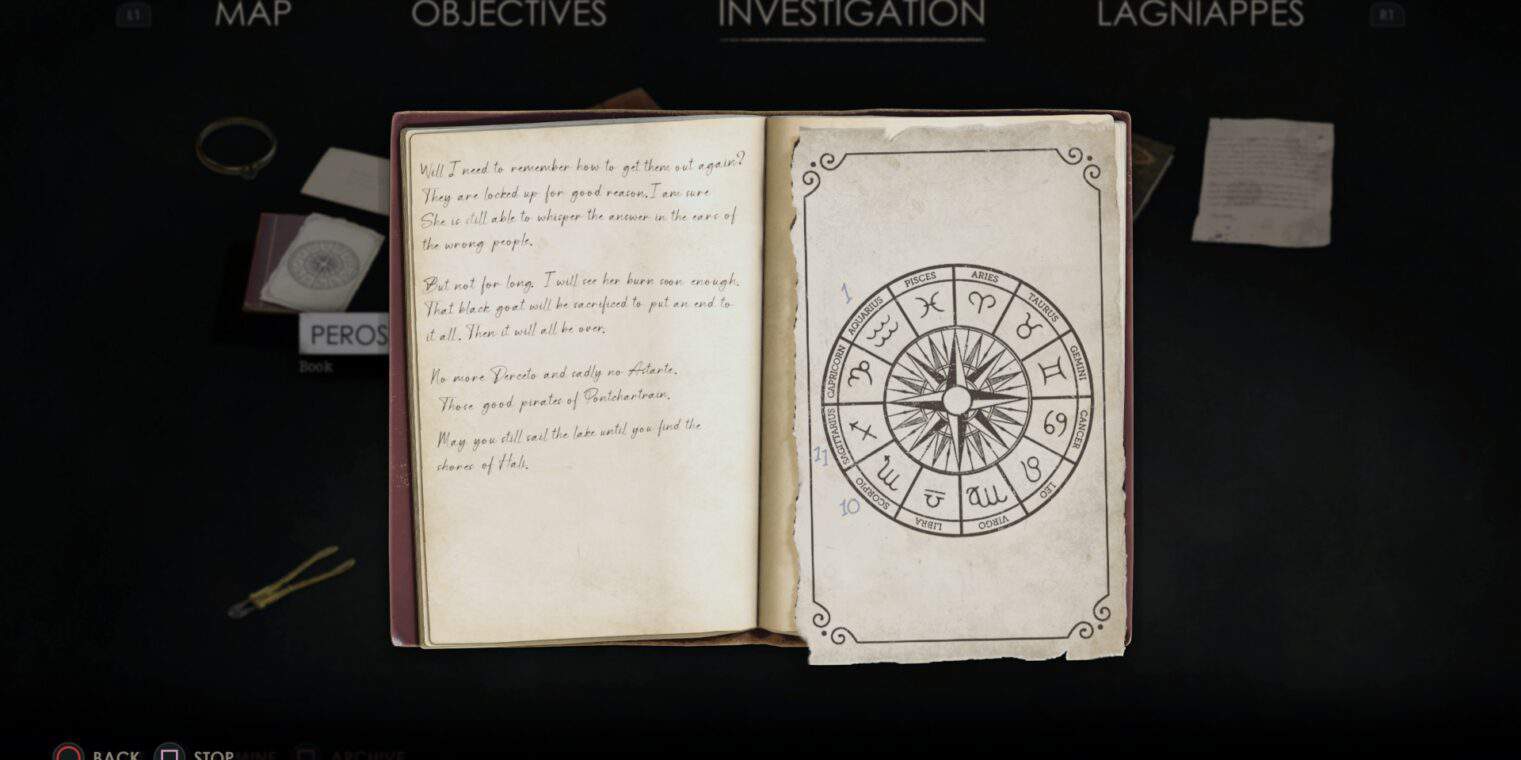 L1 MAP OBJECTIVES INVESTIGATION LAGNIAPPES R1
Well I need to remember how to get them out again?
They are locked up for good reason. I am sure
She is still able to whisper the answer in the ears of
the wrong people.
But not for long. I will see her burn soon enough.
That black goat will be sacrificed to put an end to
it all. Then it will all be over.
No more Derceto and sadly no Astarte.
Those good pirates of Pontchartrain.
May you still sail the lake until you find the
shores of Hali.
1
11
10
PISCES
ARIES
TAURUS
GEMINI
CANCER
LEO
VIRGO
LIBRA
SCORPIO
SAGITTARIUS
CAPRICORN
AQUARIUS
PEROS
Book
BACK STOP ARCHIVE